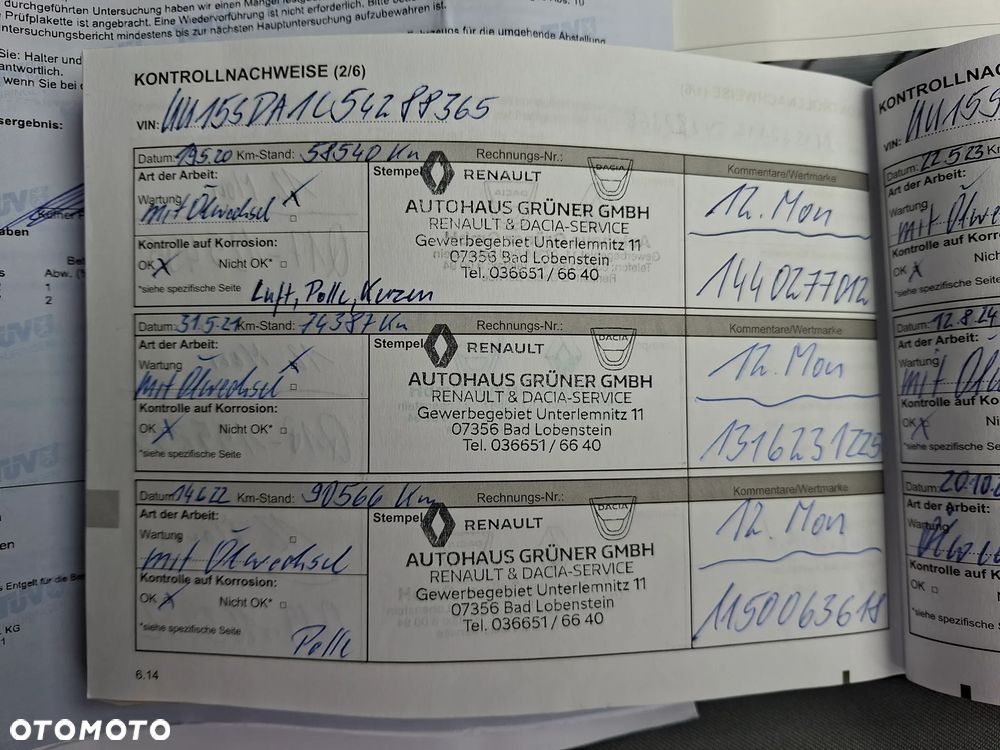 durchgeführten Untersuchung haben wir einen Mangel
Prüfplakette ist angebracht. Eine Wiedervorführung ist nicht erforderlich. Bitte
ntersuchungsbericht mindestens bis zur nächsten Hauptuntersuchung aufzubewahren ist.
für die umgehende Abstellung
Sie: Halter und
antwortlich.
wenn Sie bei
sergebnis:
aben
Abw.
1
2
Entgelt für die
KG
KONTROLLNACHWEISE (2/6)
VIN: UU15SDA1C54288365
Datum: 19.5.20 Km-Stand: 58540 Km Rechnungs-Nr.:
Art der Arbeit:
Wartung X
mit Ölwechsel
Kontrolle auf Korrosion:
OK X Nicht OK*
*siehe spezifische Seite
Luft, Polle, Kerzen
Stempel
RENAULT DACIA
AUTOHAUS GRÜNER GMBH
RENAULT & DACIA-SERVICE
Gewerbegebiet Unterlemnitz 11
07356 Bad Lobenstein
Tel. 036651 / 66 40
Kommentare/Wertmarke
12. Mon
1440277012
Datum: 31.5.21 Km-Stand: 74387 Km Rechnungs-Nr.:
Art der Arbeit:
Wartung X
mit Ölwechsel
Kontrolle auf Korrosion:
OK X Nicht OK*
*siehe spezifische Seite
Stempel
RENAULT DACIA
AUTOHAUS GRÜNER GMBH
RENAULT & DACIA-SERVICE
Gewerbegebiet Unterlemnitz 11
07356 Bad Lobenstein
Tel. 036651 / 66 40
Kommentare/Wertmarke
12. Mon
1316231225
Datum: 14.6.22 Km-Stand: 90566 Km Rechnungs-Nr.:
Art der Arbeit:
Wartung
mit Ölwechsel
Kontrolle auf Korrosion:
OK X Nicht OK*
*siehe spezifische Seite
Polle
Stempel
RENAULT DACIA
AUTOHAUS GRÜNER GMBH
RENAULT & DACIA-SERVICE
Gewerbegebiet Unterlemnitz 11
07356 Bad Lobenstein
Tel. 036651 / 66 40
Kommentare/Wertmarke
12. Mon
1150063618
6.14
KONTROLLNACHWEISE
VIN: UU15S
Datum: 22.5.23 Km-
Art der Arbeit:
Wartung
mit
Kontrolle auf Korrosion:
OK X Nich
*siehe spezifische Seite
Datum: 12.8.24
Art der Arbeit:
Wartung
mit
Kontrolle auf Korr
OK X Nich
*siehe spezifische Seite
Datum: 20.10.
Art der Arbeit:
Wartung
Kontrolle auf Korrosion:
OK N
*siehe spezifische Seite
OTOMOTO